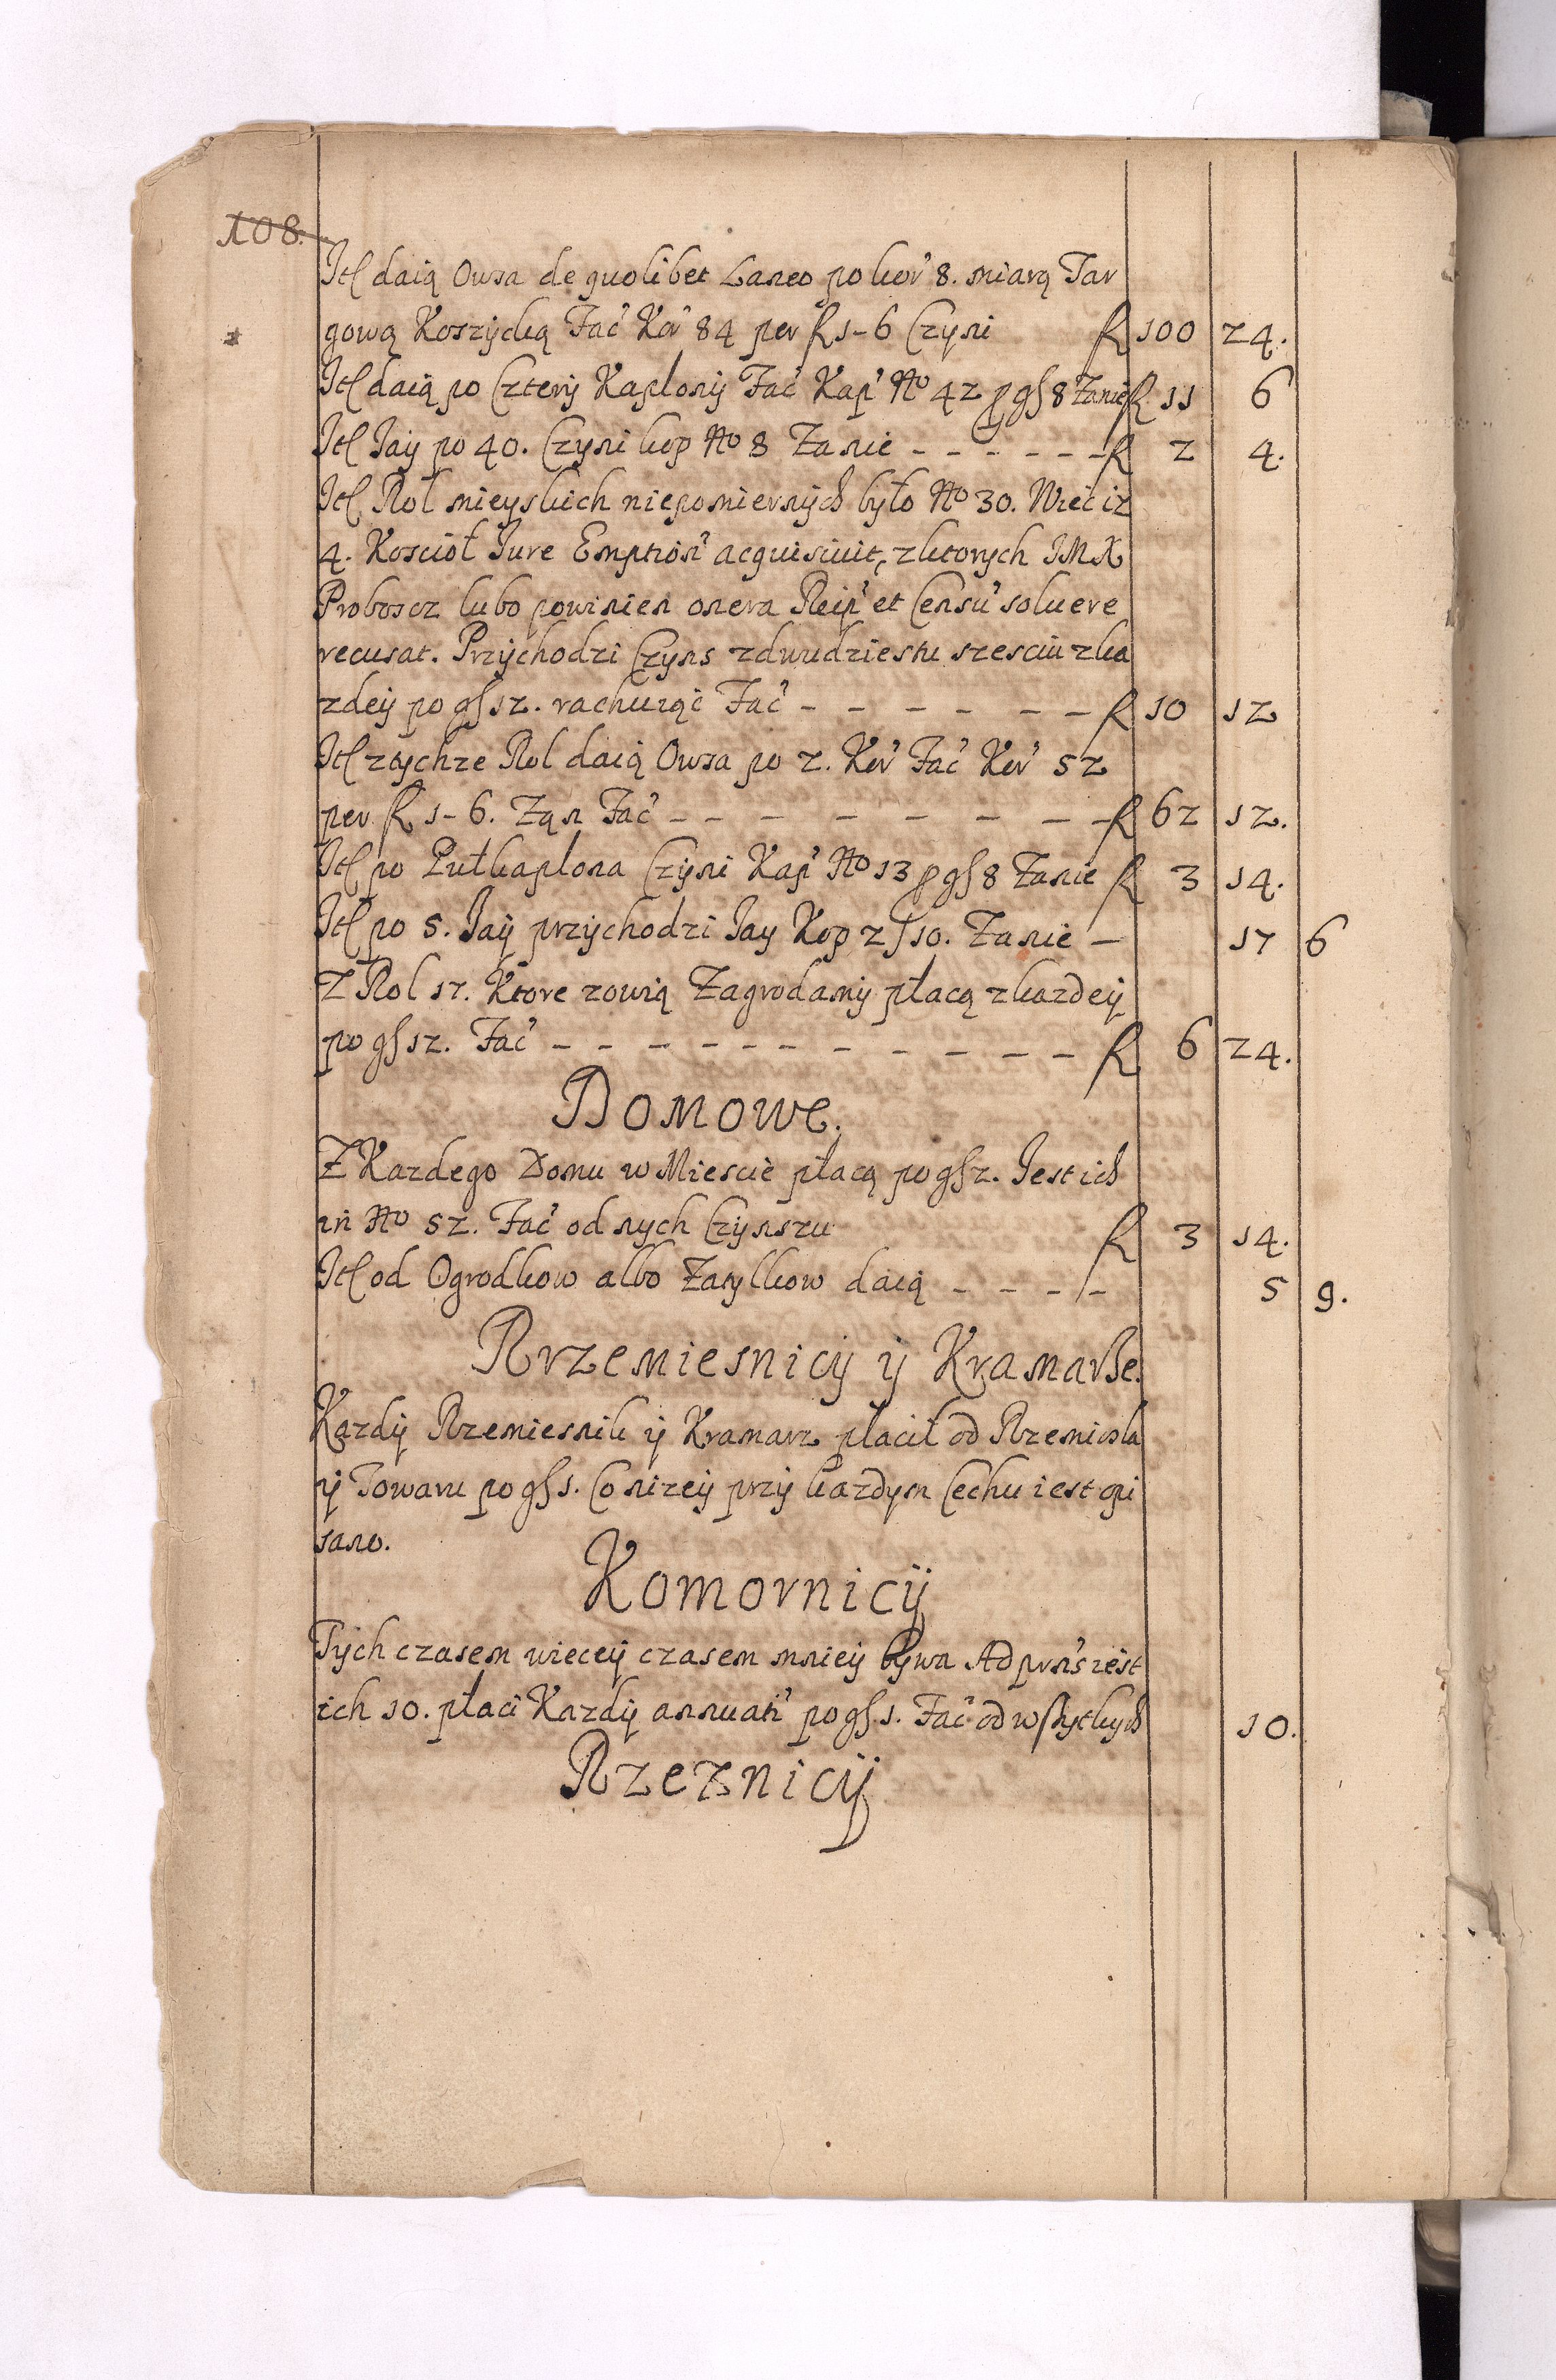 108.
Itē daią Owsa de quolibet Laneo po kor' 8. miarą Tar
gową Koszycką Fać Kor' 84 per ƒ 1-6 Czyni ƒ 100 24.
Itē daią po Czterÿ Kapłonÿ Fać Kap' No 42 p gs 8 Zanie ƒ 11 6
Itē Jay po 40. Czyni kop No 8 Zanie - - - - - - ƒ 2 4.
Itē Rol mieyskich niepomiernÿch było No 30. Nietiz
4. Koscioł Jure Emption' acquisiuit, zktorych JMX
Proboscz lubo powinien onera Reip' et Censu' soluere
recusat. Przÿchodzi Czyns zdwudziestu szesciu zka
zdeÿ po gs 12. rachuiąc Fać - - - - - - ƒ 10 12
Itē ztychze Rol daią Owsa po 2. Kor' Fać Kor' 52
per ƒ 1-6. Zān Fać - - - - - - - - ƒ 62 12.
Itē po Pułkapłona Czÿni Kap' No 13 p gs 8 Zanie ƒ 3 14.
Itē po 5. Jaÿ przÿchodzi Jay Kop 2/10. Zanie - 17 6
Z Rol 17. Ktore zowią Zagrodamÿ płacą zkazdeÿ
po gs 12. Fać - - - - - - - - - - - ƒ 6 24.
Domowe.
Z Kazdego Domu w Miescie płacą po gs 2. Jest ich
in No 52. Fać od nych Czÿnszu ƒ 3 14.
Itē od Ogrodkow albo Zatylkow daią - - - - 5 9.
Rzemiesnicÿ ÿ Kramarße.
Kazdÿ Rzemiesnik ÿ Kramarz płacił od Rzemiosla
ÿ Towaru po gs 1. Co nizeÿ przÿ kazdym Cechu iest opi
sano.
Komornicÿ
Tÿch czasem wieceÿ czasem mnieÿ bÿwa Ad prns' iest
ich 10. płaci Kazdÿ annuati' po gs 1. Fać od wßytkych 10.
Rzeznicÿ